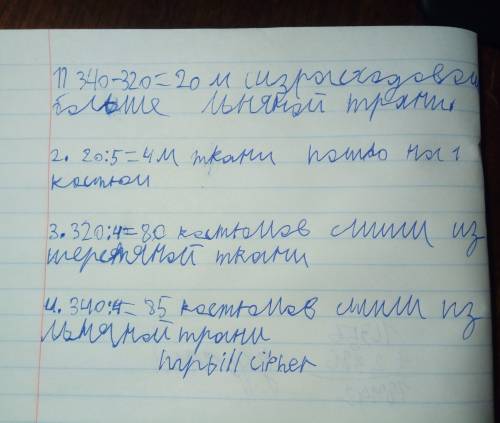 1) 340-320=20 м израсходовали
больше льняной ткани.
2. 20:5=4м ткани пошло на 1
костюм
3. 320:4=80 костюмов сшили из
шерстяной ткани
4. 340:4=85 костюмов сшили из
льняной ткани